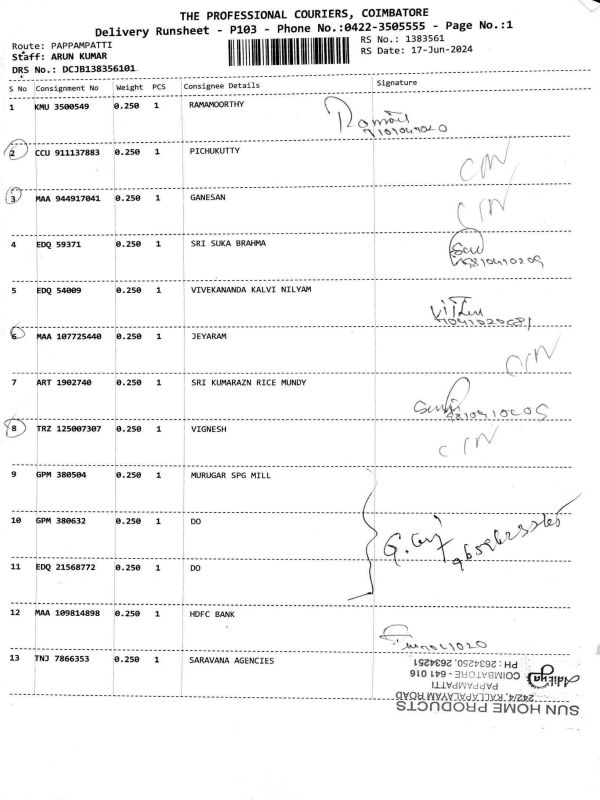 THE PROFESSIONAL COURIERS, COIMBATORE
Delivery Runsheet - P103 - Phone No.:0422-3505555 - Page No.:1
Route: PAPPAMPATTI
RS No.: 1383561
Staff: ARUN KUMAR
RS Date: 17-Jun-2024
DRS No.: DCJB138356101
S No Consignment No Weight PCS Consignee Details Signature
1 KMU 3500549 0.250 1 RAMAMOORTHY
2 CCU 911137883 0.250 1 PICHUKUTTY
3 MAA 944917041 0.250 1 GANESAN
4 EDQ 59371 0.250 1 SRI SUKA BRAHMA
5 EDQ 54009 0.250 1 VIVEKANANDA KALVI NILYAM
6 MAA 107725440 0.250 1 JEYARAM
7 ART 1902740 0.250 1 SRI KUMARAZN RICE MUNDY
8 TRZ 125007307 0.250 1 VIGNESH
9 GPM 380504 0.250 1 MURUGAR SPG MILL
10 GPM 380632 0.250 1 DO
11 EDQ 21568772 0.250 1 DO
12 MAA 109814898 0.250 1 HDFC BANK
13 TNJ 7866353 0.250 1 SARAVANA AGENCIES
SUN HOME PRODUCTS
242/4, KALLAPALAYAM ROAD
PAPPAMPATTI
COIMBATORE - 641 016
PH : 2634250, 2634251